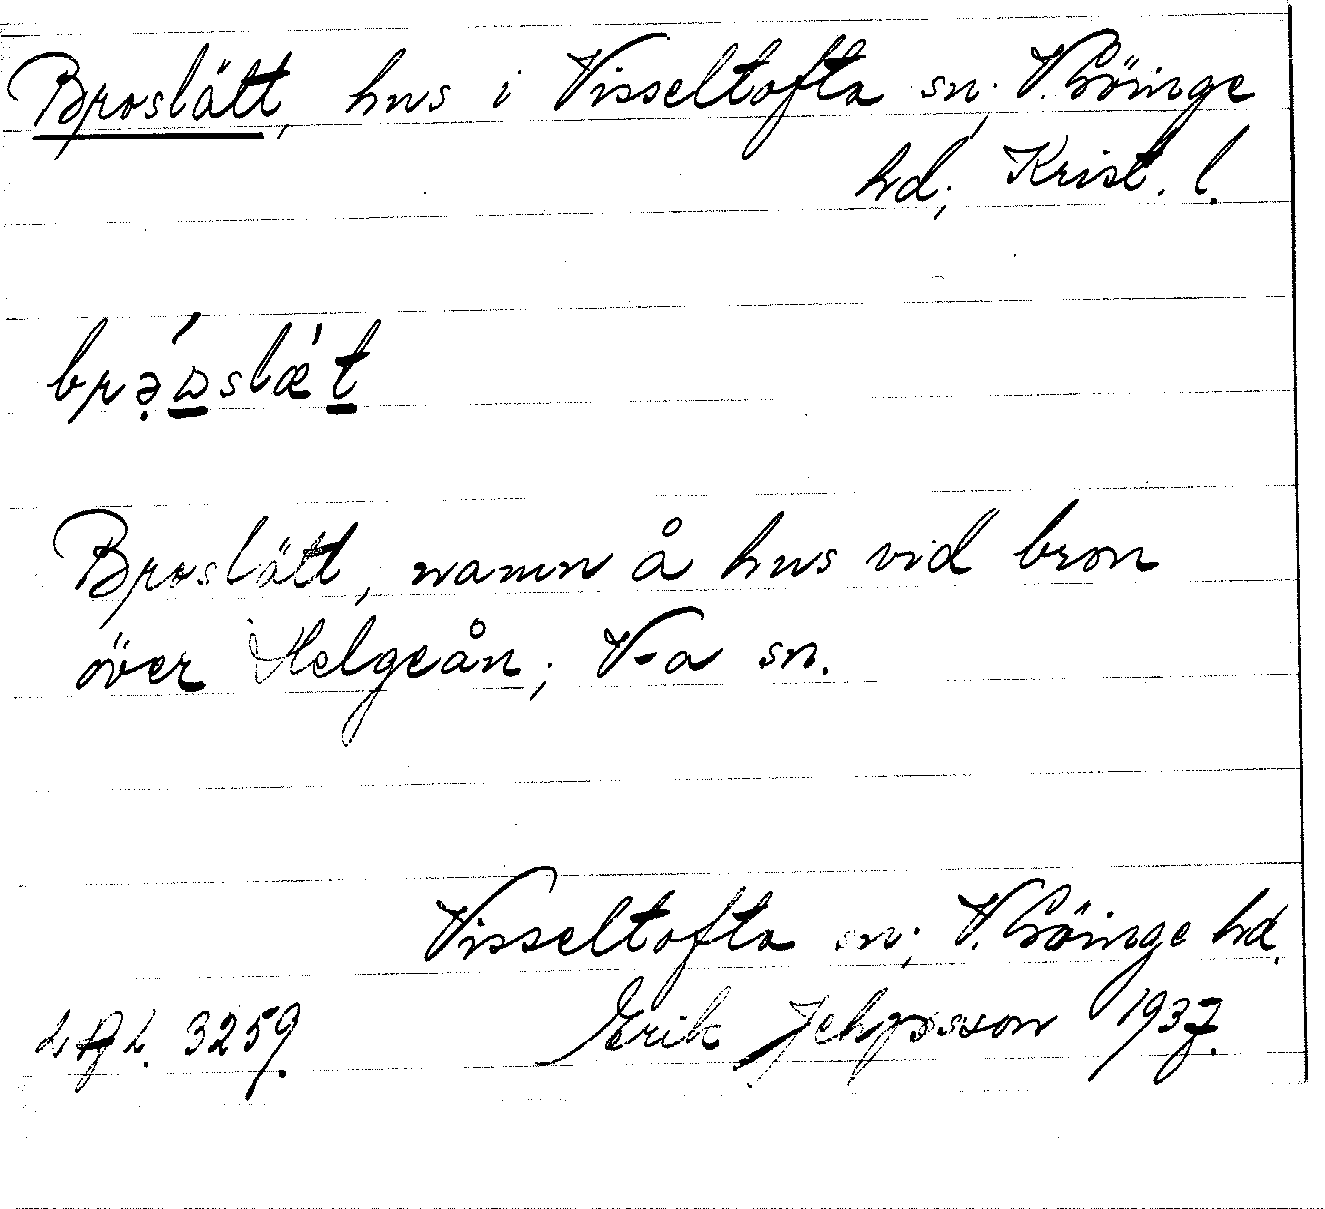 Broslätt, hus i Visseltofta sn; V. Göinge
hd; Krist. l.
brə̣ɷ́slæ̍t
Broslätt, namn å hus vid bron
över Helgeån; V-a sn.
Visseltofta sn; V. Göinge hd.
Erik Jeppsson 1937.
LAL. 3259.